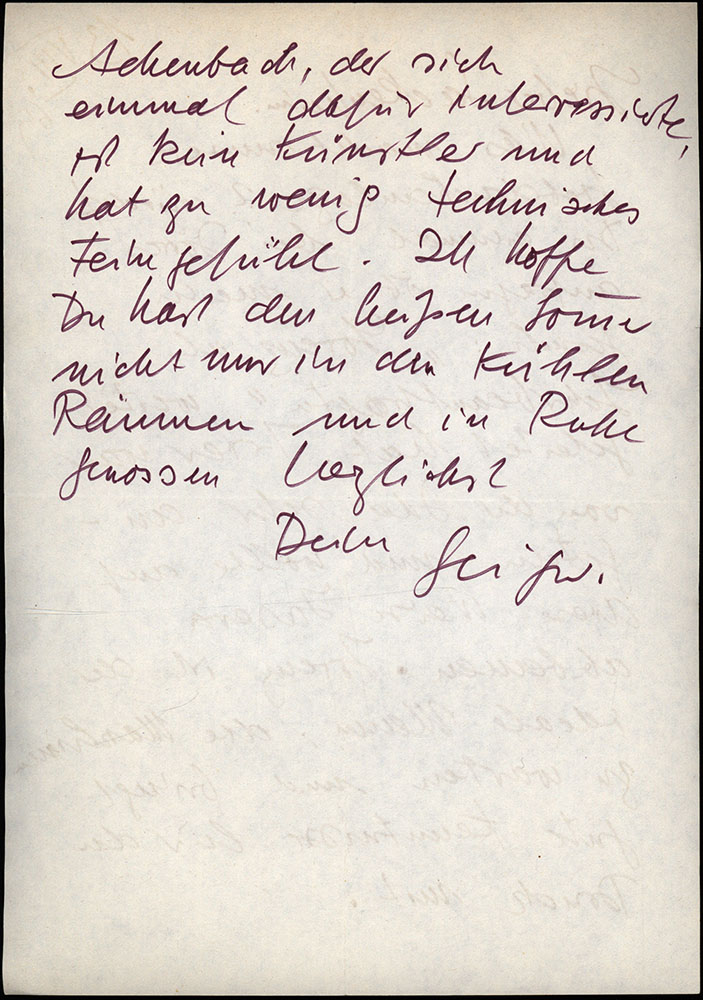 Achenbach, der sich
einmal dafür interessierte,
ist kein Künstler und
hat zu wenig technisches
Feingefühl. Ich hoffe
Du hast den heißen Somer
nicht nur in den kühlen
Räumen und in Ruhe
genossen herzlichst
Dein